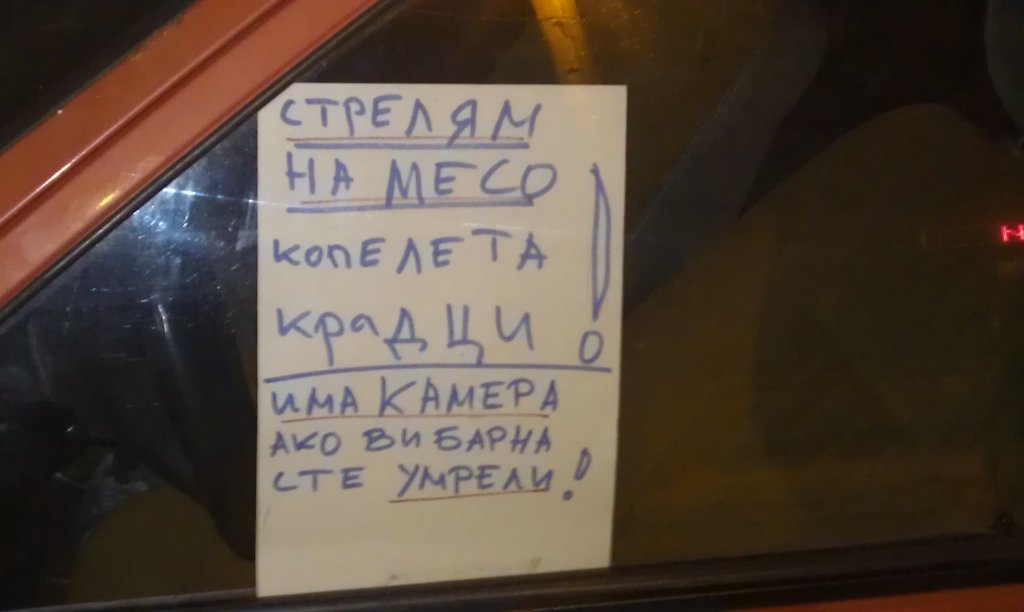 СТРЕЛЯМ
НА МЕСО
КОПЕЛЕТА
КРАДЦИ!
ИМА КАМЕРА
АКО ВИ БАРНА
СТЕ УМРЕЛИ!